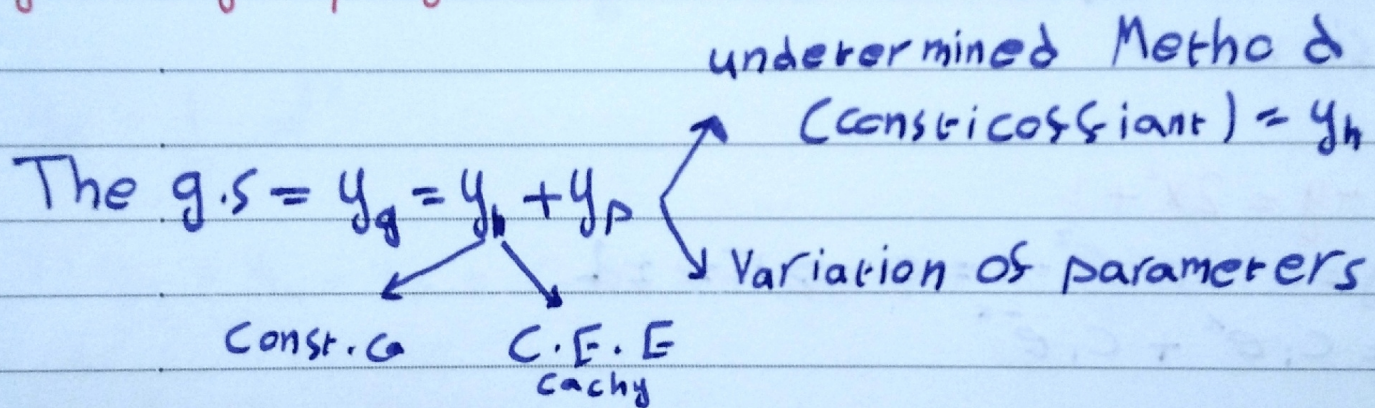 undetermined Method
(const.icoffiant) = yh
The g.s = yg = yh + yp
Variation of parameters
Const.co C.E.E
cachy